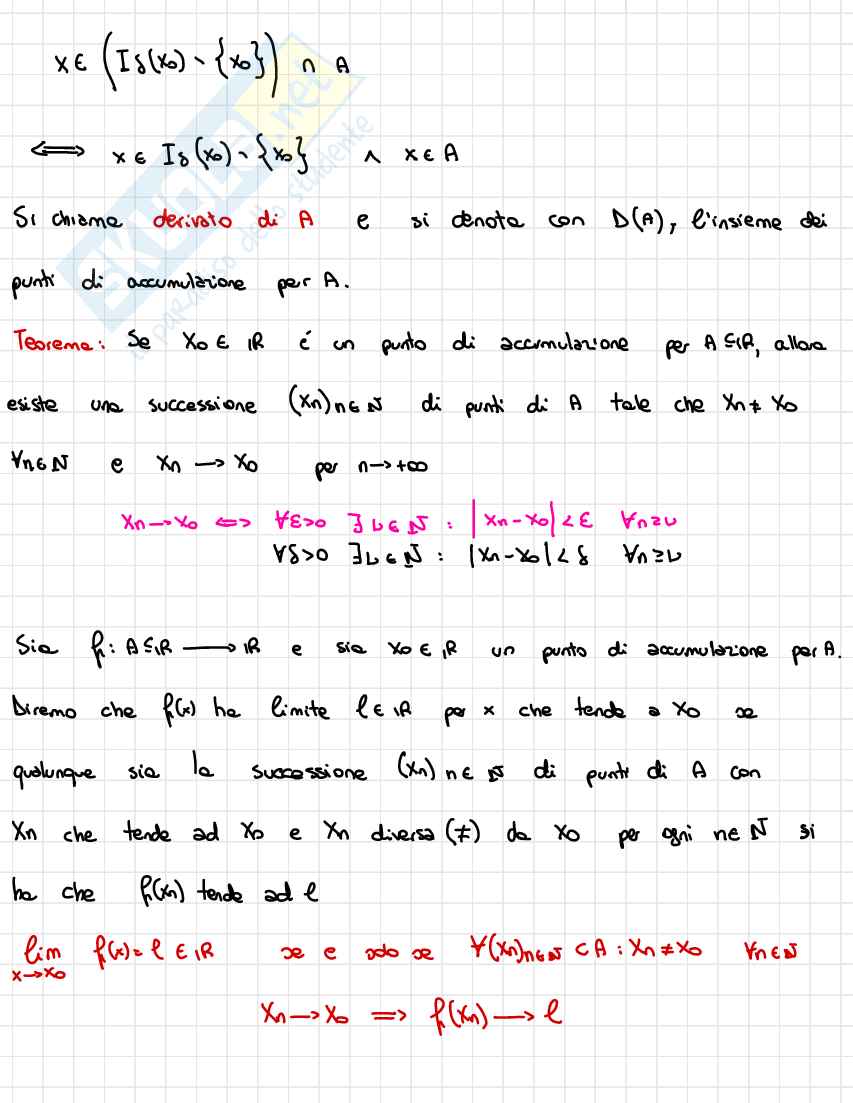 x ∈ (Iδ(x₀) \ {x₀}) ∩ A
⟺ x ∈ Iδ(x₀) \ {x₀} ∧ x ∈ A
Si chiama derivato di A e si denota con D(A), l'insieme dei
punti di accumulazione per A.
Teorema: Se x₀ ∈ ℝ é un punto di accumulazione per A ⊆ ℝ, allora
esiste una successione (xₙ)ₙ∈ℕ di punti di A tale che xₙ ≠ x₀
∀n∈ℕ e xₙ → x₀ per n→+∞
xₙ→x₀ ⟺ ∀ε>0 ∃ν∈ℕ : |xₙ-x₀|<ε ∀n≥ν
∀δ>0 ∃ν∈ℕ : |xₙ-x₀|<δ ∀n≥ν
Sia f: A⊆ℝ ⟶ ℝ e sia x₀ ∈ ℝ un punto di accumulazione per A.
Diremo che f(x) ha limite l∈ℝ per x che tende a x₀ se
qualunque sia la successione (xₙ)ₙ∈ℕ di punti di A con
xₙ che tende ad x₀ e xₙ diversa (≠) da x₀ per ogni n∈ℕ si
ha che f(xₙ) tende ad l
lim f(x)= l ∈ ℝ se e solo se ∀(xₙ)ₙ∈ℕ ⊂ A : xₙ≠x₀ ∀n∈ℕ
x→x₀
xₙ→x₀ ⟹ f(xₙ) ⟶ l
SKUOLA.net
il paradiso dello studente